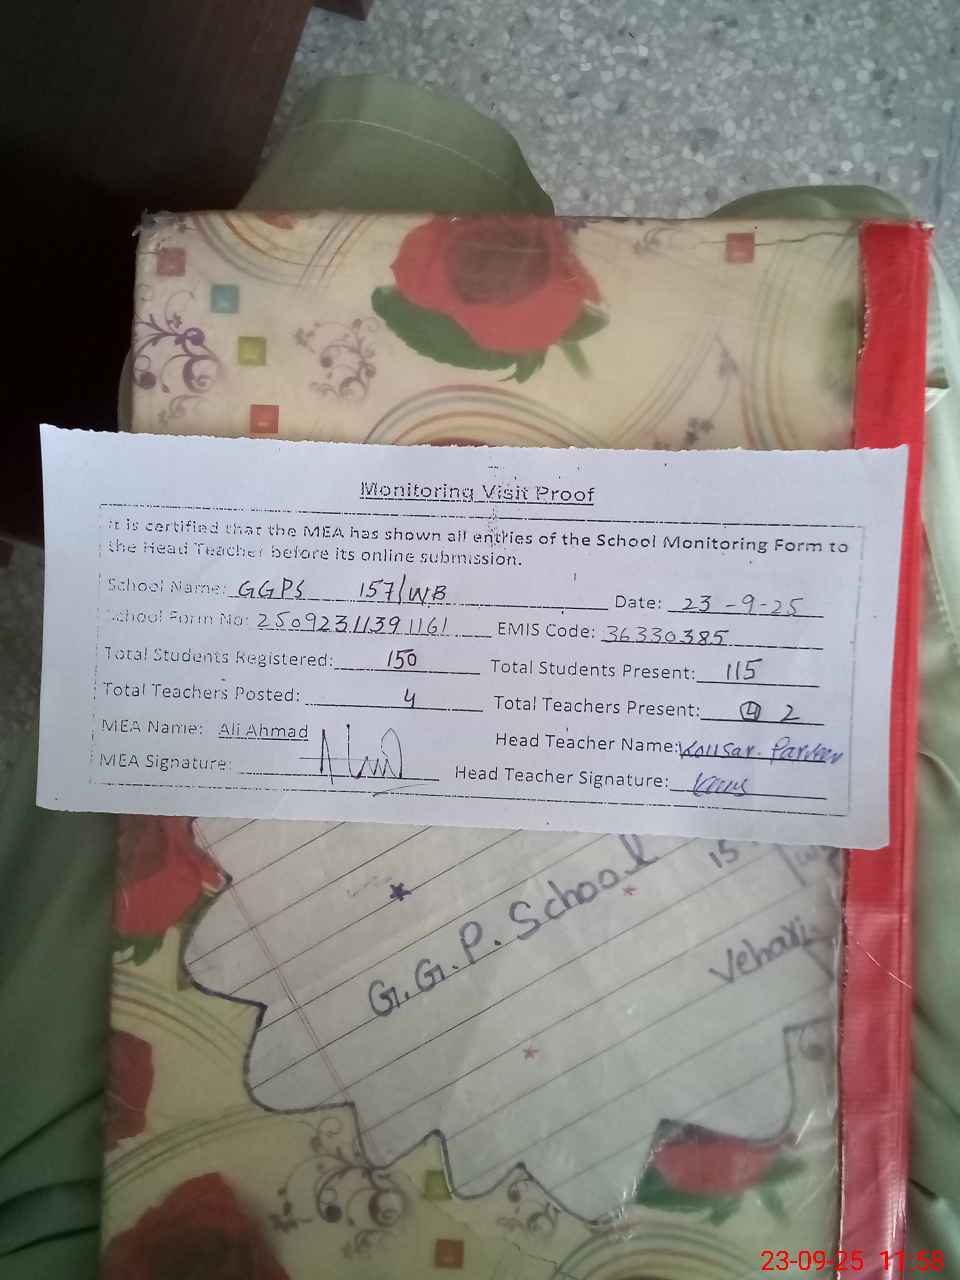 Monitoring Visit Proof
It is certified that the MEA has shown all entries of the School Monitoring Form to
the Head Teacher before its online submission.
School Name: GGPS 157/WB Date: 23-9-25
School Form No: 2509231139 1161 EMIS Code: 36330385
Total Students Registered: 150 Total Students Present: 115
Total Teachers Posted: 4 Total Teachers Present: 4 2
MEA Name: Ali Ahmad Head Teacher Name: Kousar Parveen
MEA Signature: Head Teacher Signature:
G.G.P. School 15
Vehari
23-09-25 11:58